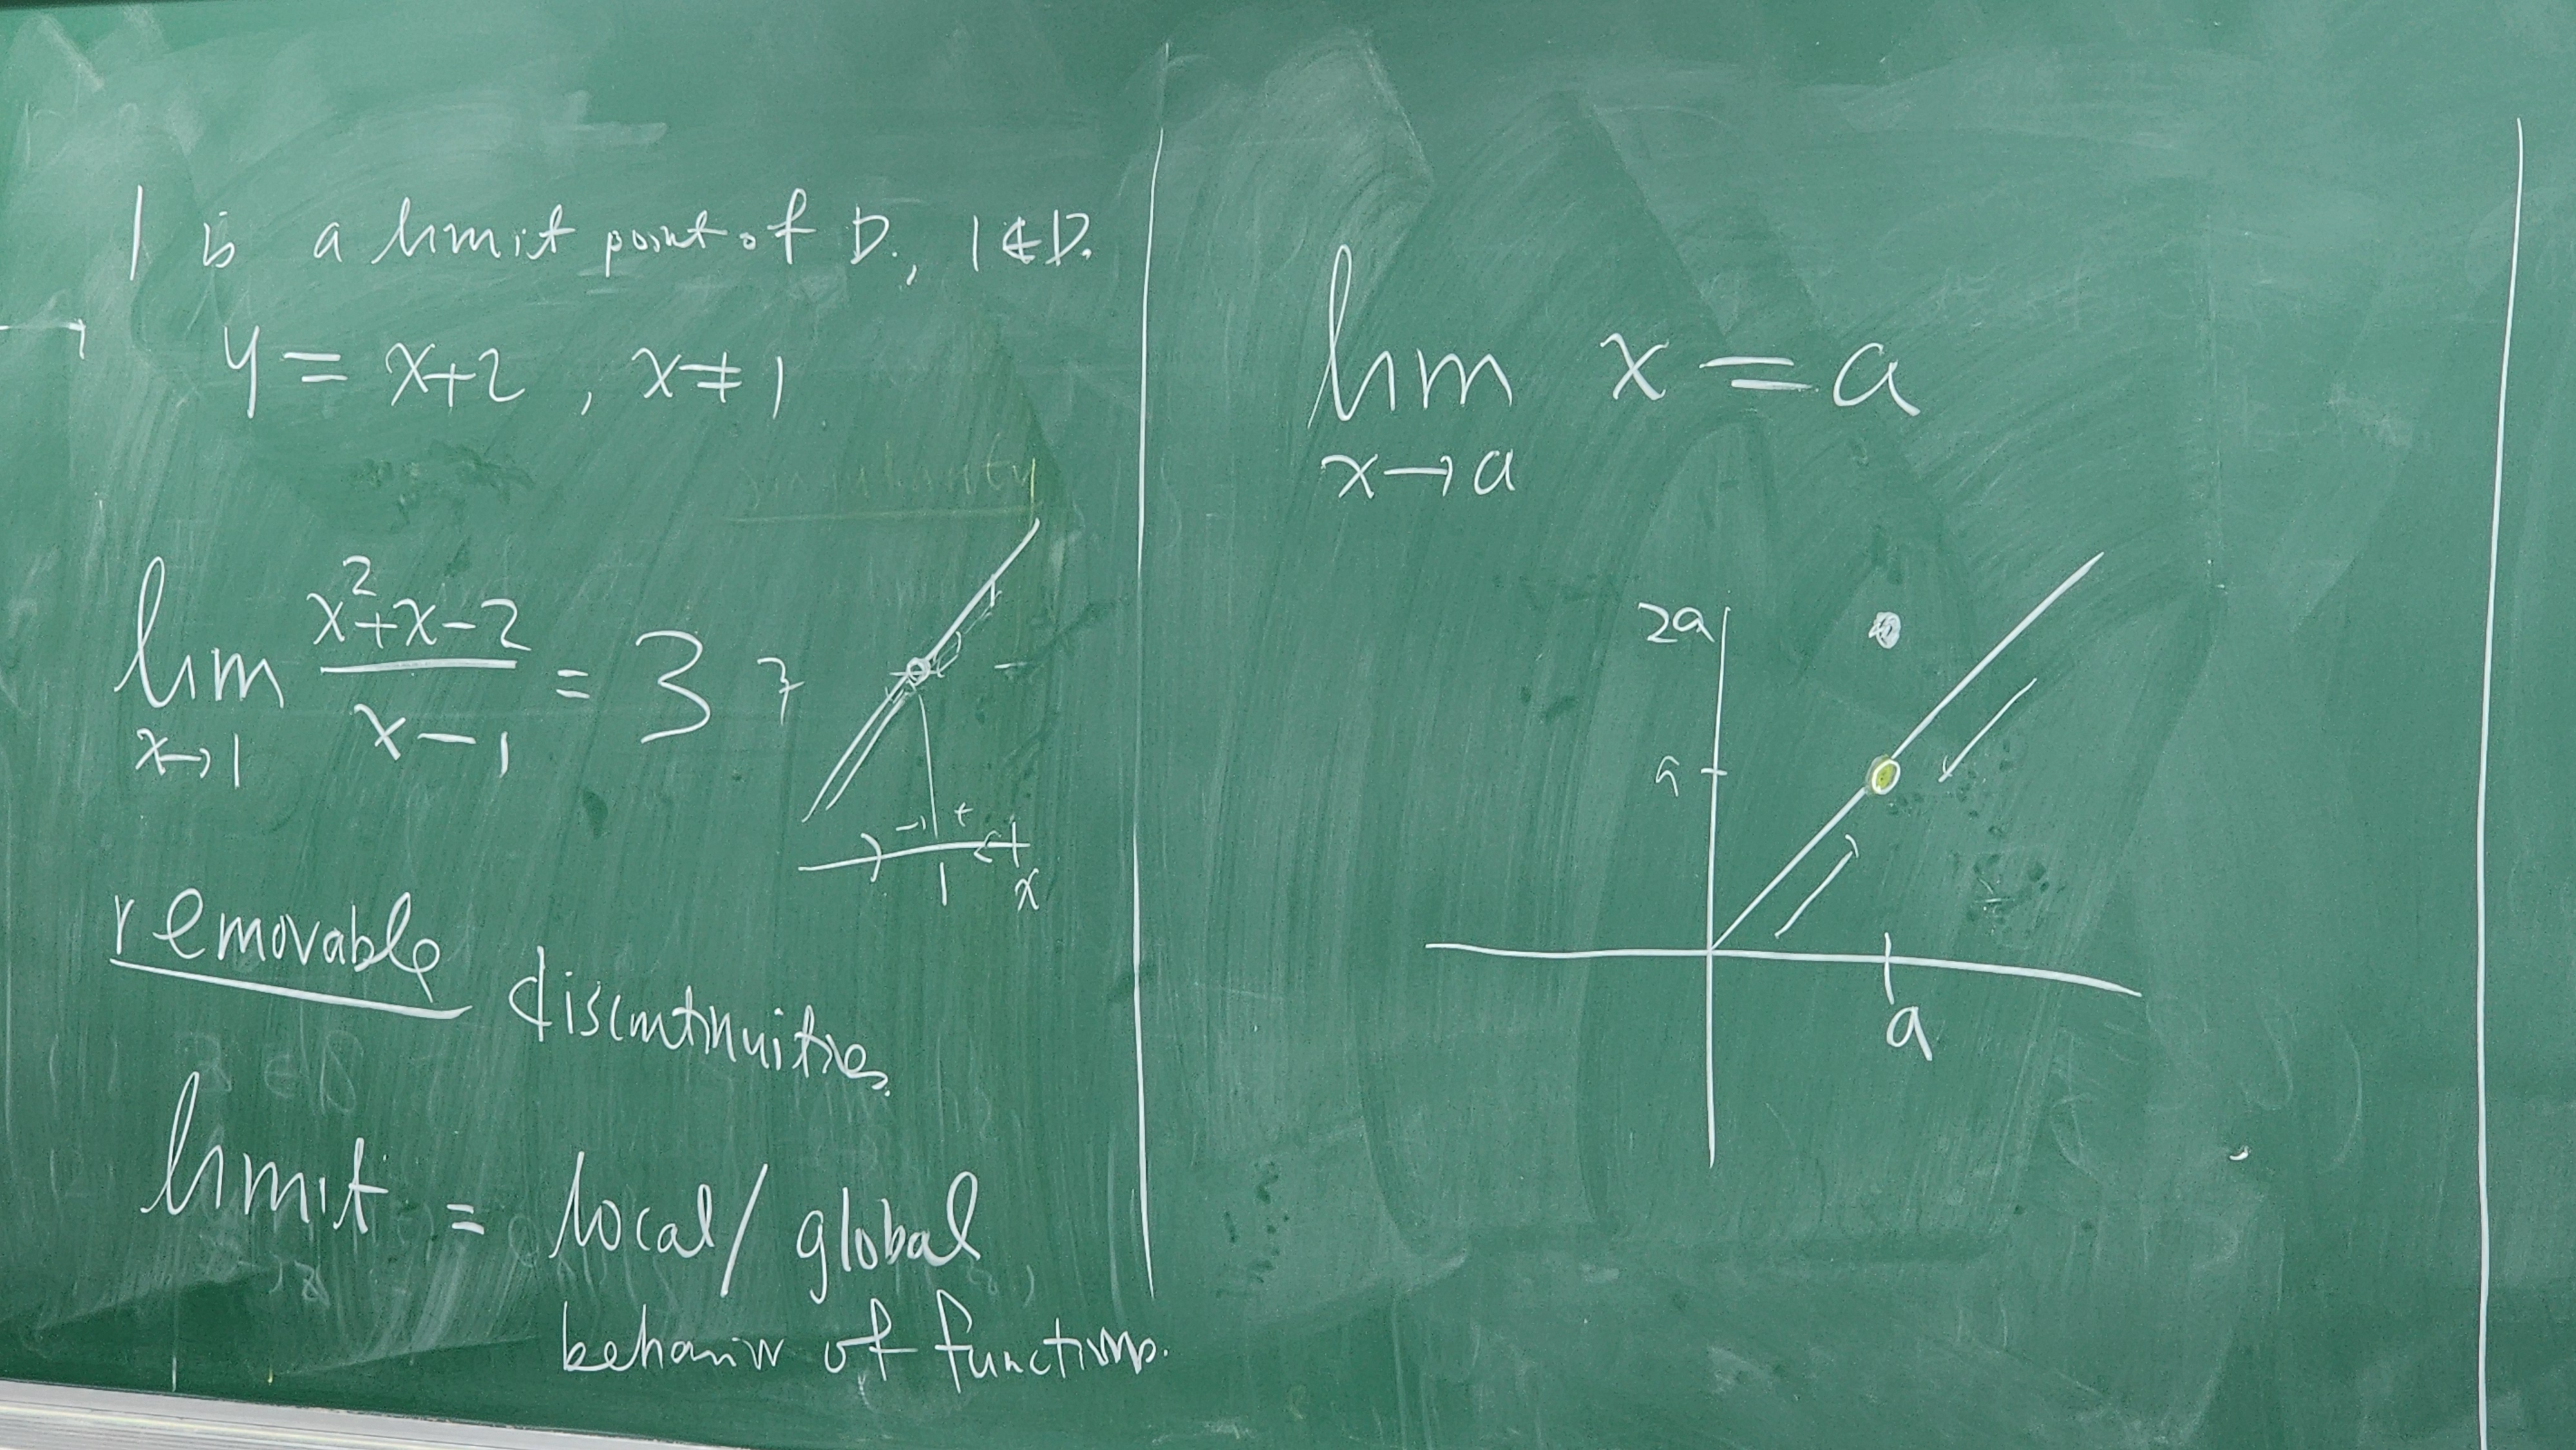 1 is a limit point of D., 1∉D.
y = x+2 , x≠1
lim x→1 (x²+x-2)/(x-1) = 3
3
- +
1 x
removable discontinuities
limit = local/ global
behavior of functions.
lim x→a x = a
2a
a
a